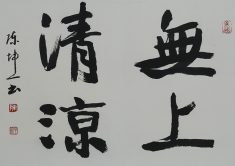 無上
清涼
陈坤一书